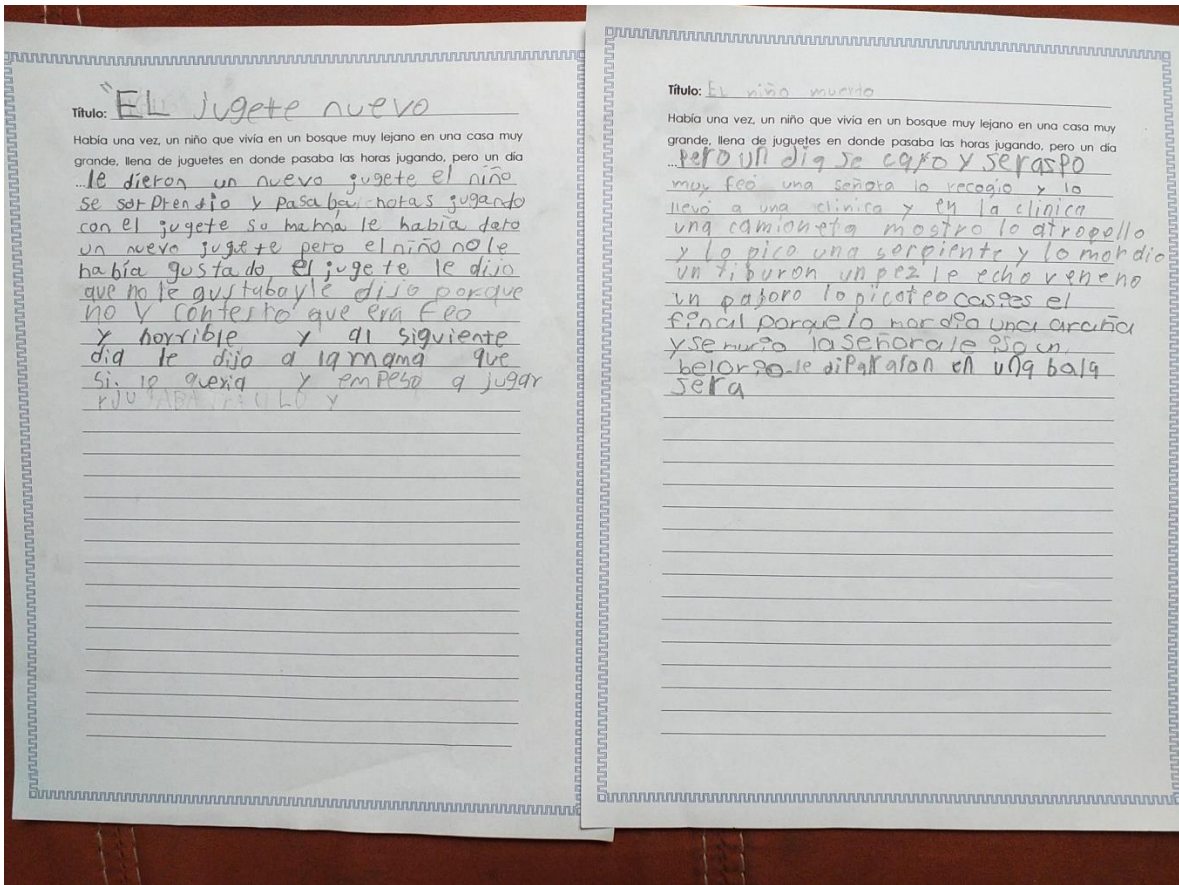 Título: "EL jugete nuevo
Había una vez, un niño que vivía en un bosque muy lejano en una casa muy
grande, llena de juguetes en donde pasaba las horas jugando, pero un día
...le dieron un nuevo jugete el niño
se sorprendio y pasaba horas jugando
con el jugete su mamá le había dato
un nuevo jugete pero el niño no le
había gustado, el jugete le dijo
que no le gustaba y le dijo porque
no y contesto que era feo
y horrible y al siguiente
dia le dijo a la mama que
si. lo queria y empeso a jugar
Título: EL niño muerto
Había una vez, un niño que vivía en un bosque muy lejano en una casa muy
grande, llena de juguetes en donde pasaba las horas jugando, pero un día
...pero un dia se cayo y se raspo
muy feo una señora lo recogio y lo
llevó a una clinica y en la clinica
una camioneta mostro lo atropello
y lo pico una serpiente y lo mordio
un tiburon un pez le echo veneno
un pajoro lo picoteo casies el
final porque lo mordio una araña
y se murio la señora le iso un
belorio le dipararon en una bala
sera